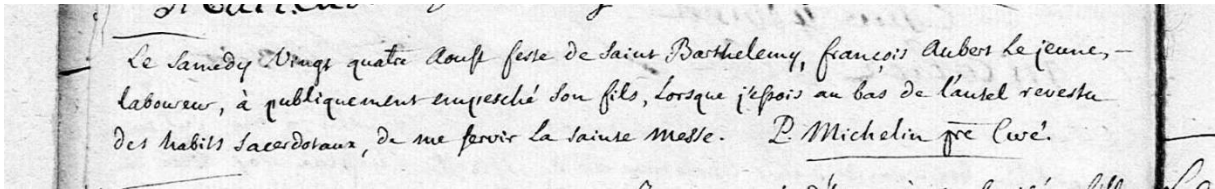 Le Samedy Vingt quatre Aoust feste de Saint Barthelemy, françois Aubert Le jeune,
laboureur, à publiquement empesché Son fils, Lorsque j'estois au bas de l'autel revestu
des habits Sacerdotaux, de me servir La sainte Messe. P. Michelin pre Curé.